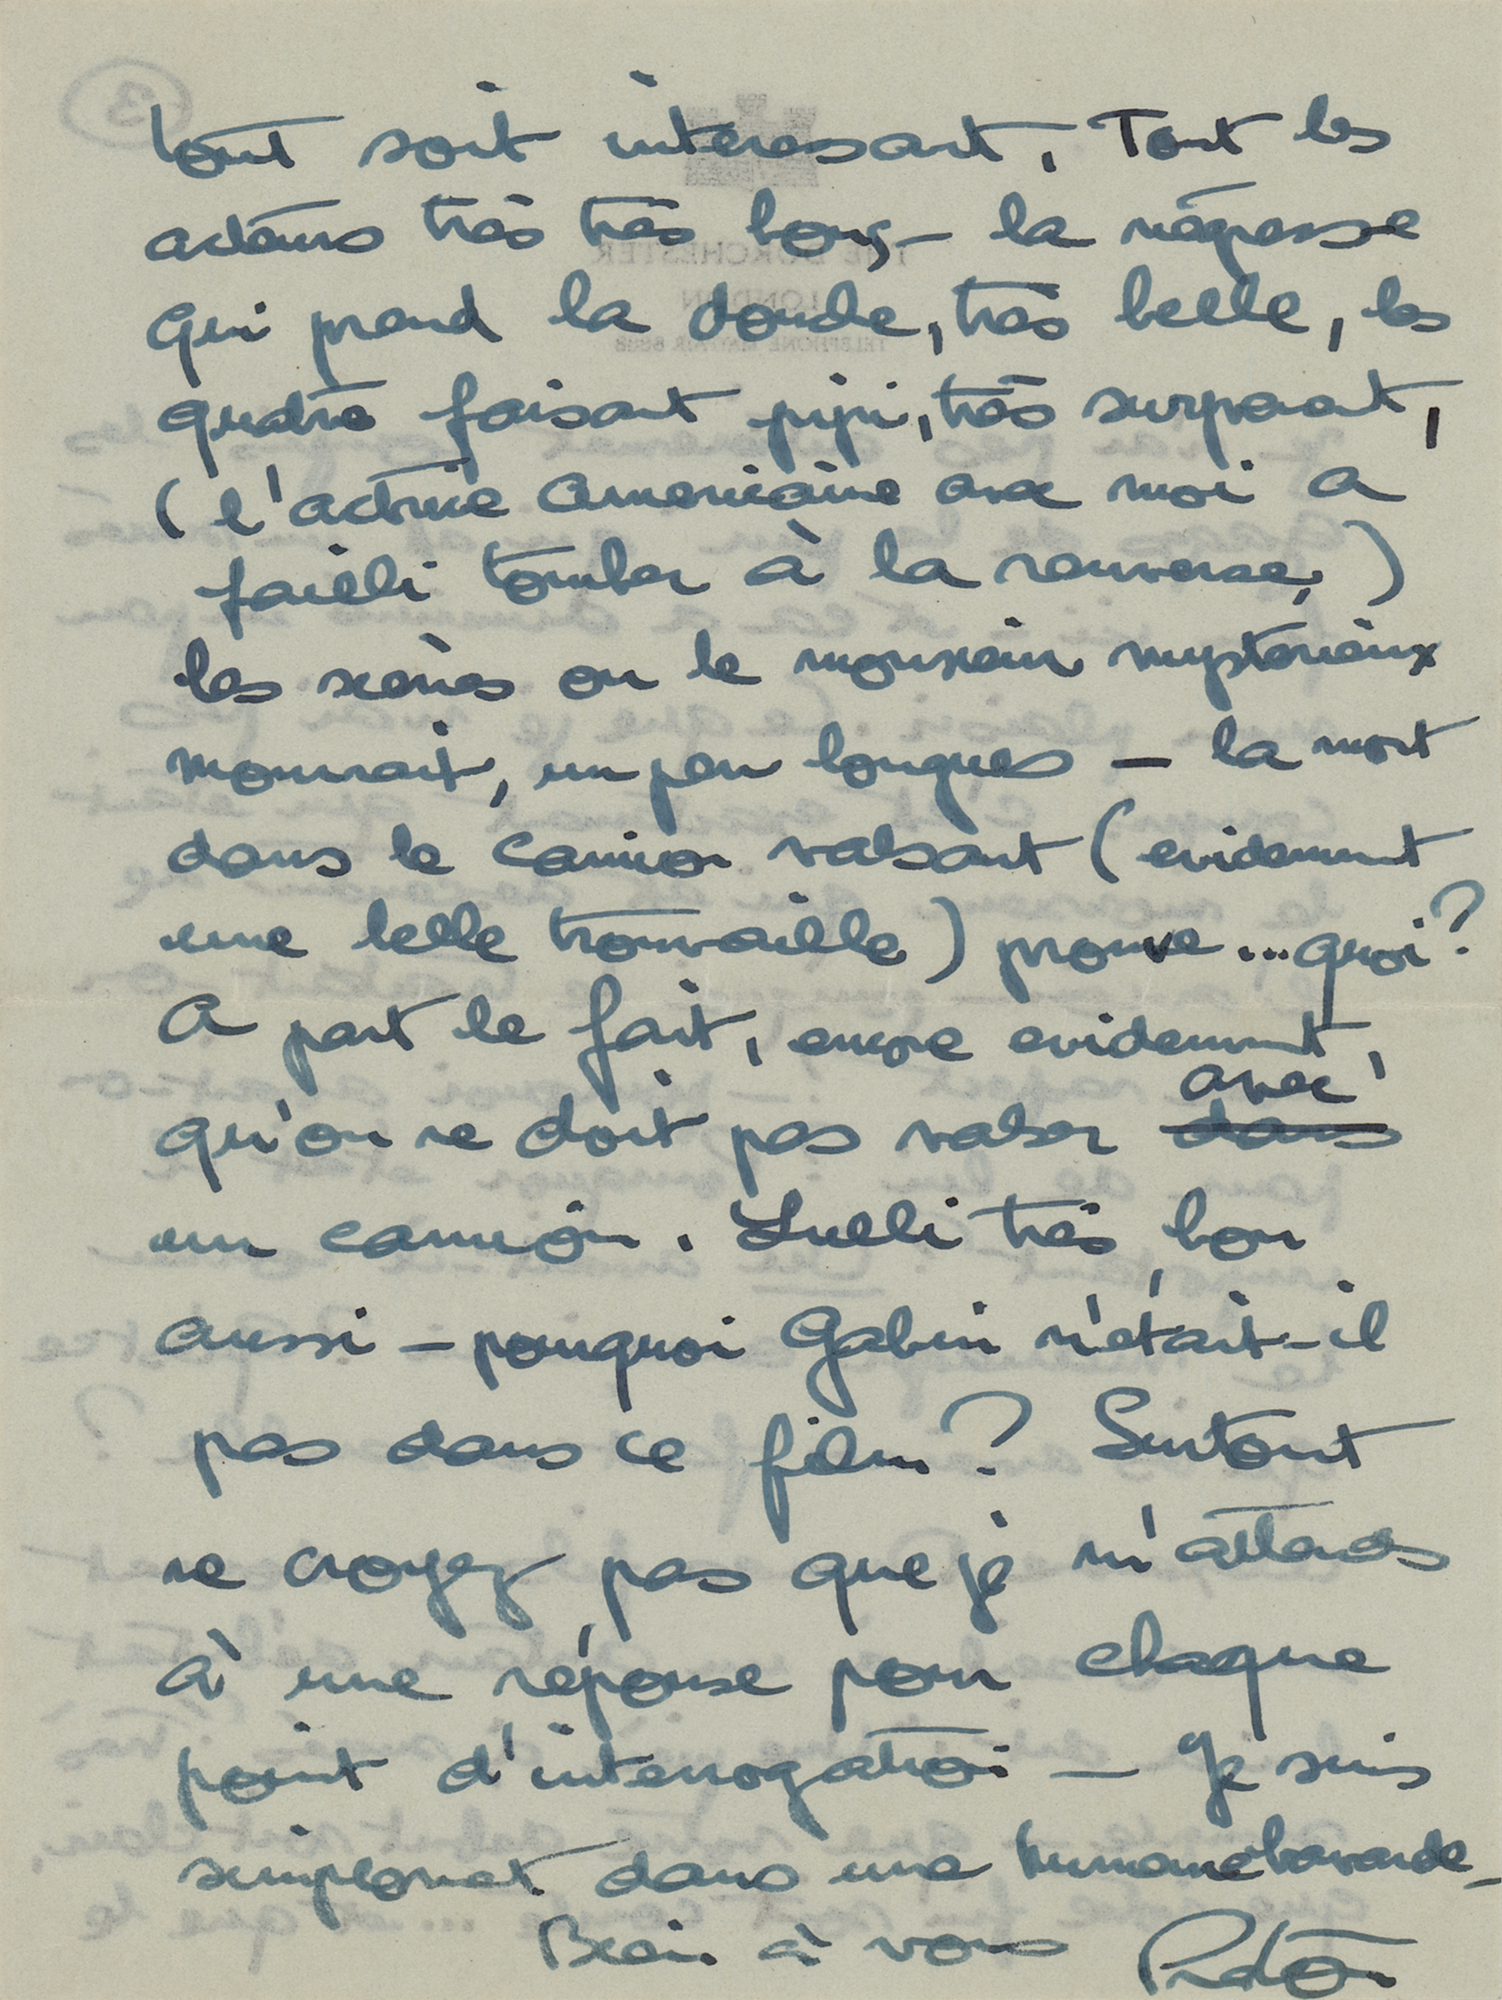 tout soit interessant, Tout les
acteurs très très bons – la négresse
qui prend la douche, très belle, les
quatre faisant pipi, très surprenant,
( l'actrice americaine avec moi a
failli tomber à la renverse, )
les scènes ou le monsieur mysterieux
mourrait, un peu longues – la mort
dans le camion valsant ( evidemment
une belle trouvaille ) prouve ... quoi?
A part le fait, encore evidemment,
qu'on ne doit pas valser dans avec
un camion. Lulli très bon
aussi – pourquoi Gabin n'était-il
pas dans ce film? Surtout
ne croyez pas que je m'attends
à une réponse pour chaque
point d'interrogation – Je suis
simplement dans une humeur bavarde –
Bien à vous
3
THE DORCHESTER
LONDON
TELEPHONE MAYFAIR 8888